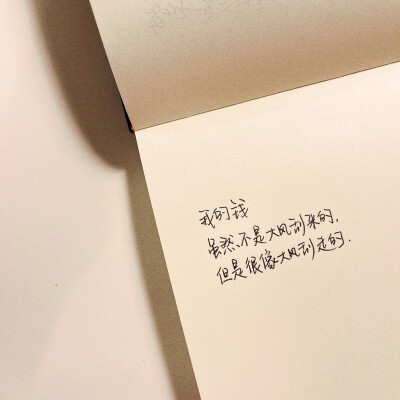 我的钱
虽然不是大风刮来的，
但是很像大风刮走的.